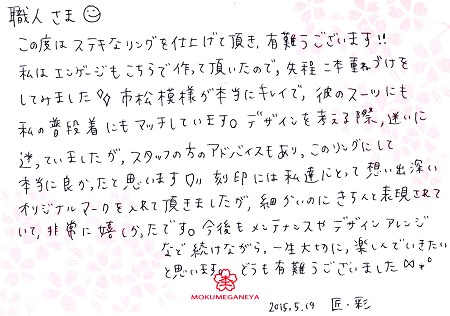 職人さま☺
この度はステキなリングを仕上げて頂き、有難うございます!!
私はエンゲージもこちらで作って頂いたので、先程二本重ねづけを
してみました 市松模様が本当にキレイで、彼のスーツにも
私の普段着にもマッチしています。デザインを考える際、迷いに
迷っていましたが、スタッフの方のアドバイスもあり、このリングにして
本当に良かったと思います 刻印には私達にとって想い出深い
オリジナルマークを入れて頂きましたが、細かいのにきちんと表現されて
いて、非常に嬉しかったです。今後もメンテナンスやデザインアレンジ
など続けながら、一生大切に、楽しんでいきたい
と思います。どうも有難うございました
MOKUMEGANEYA
2015.5.19 匠・彩